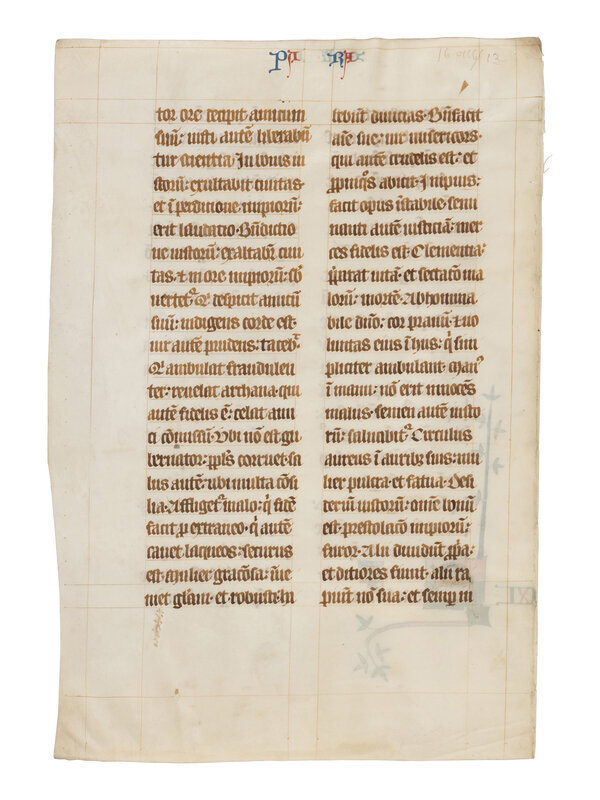 PA RA
tor ore decipit amicum
suū: iusti autē liberabū
tur scientia. In bonis iu
storū: exultabit ciuitas.
et ī perditione impiorū:
erit laudatio. Bn̄dictio
ne iustorū: exaltabit͛ ciui
tas. & in ore impiorū: sb̄
uertet͛. Qi despicit amicū
suū: indigens corde est.
uir autē prudens: taceb͛.
Qi ambulat fraudulen
ter: reuelat archana. qui
autē fidelis ē: celat ami
ci cōmissū. Vbi nō est gu
bernator: ppl̄s corruet. sa
lus autē: ubi multa cōsi
lia. Affliget͛ malo: qi fidē
facit ꝑ extraneo. qi autē
cauet laqueos: securus
est. Mulier graciosa: īue
niet glām. et robusti: ha
bebūt diuicias. Bn̄facit
aīe sue: uir misericors.
qui autē crudelis est: et
ꝓpinqos abicit. Impius:
facit opus īstabile. semi
nanti autē iusticiā: mer
ces fidelis est. Clementia
p̄parat uitā. et sectacō ma
lorū: mortē. Abhomina
bile dn̄o: cor prauū. & uo
luntas eius ī hiis: qi sim
pliciter ambulant. Man͛
ī manu: nō erit innocēs
malus. semen autē iusto
rū: saluabit͛. Circulus
aureus ī aurib; suis: mu
lier pulcra et fatua. Desi
deriū iustorū: omē bonū
est. prestolacō impiorū:
furor. Alii diuidūt ꝓpa:
et ditiores fiunt. alii ra
piūt nō sua: et semp in